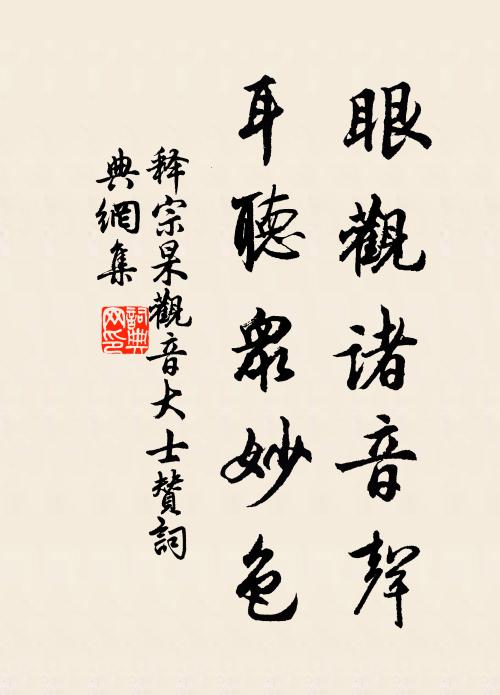 眼觀諸音聲
耳聽眾妙色
释宗杲觀音大士贊詞
典網集
詞典網印